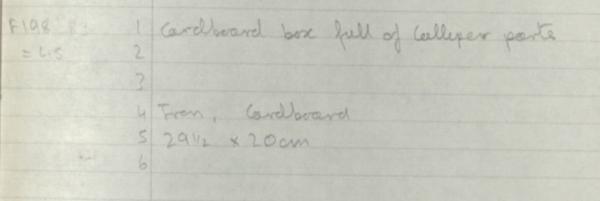 F198 1 Cardboard box full of Calliper parts
= L.S 2
3
4 Iron, Cardboard
5 29 1/2 x 20cm
6